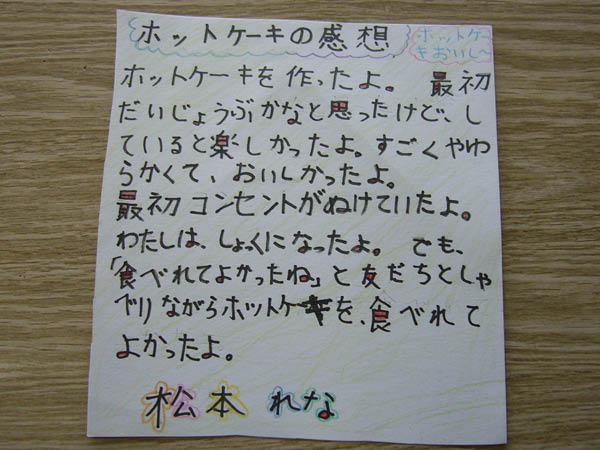 ホットケーキの感想
ホットケー
キおいし～
ホットケーキを作ったよ。 最初
だいじょうぶかなと思ったけど、し
ていると楽しかったよ。すごくやわ
らかくて、おいしかったよ。
最初コンセントがぬけていたよ。
わたしは、しょっくになったよ。 でも、
「食べれてよかったね」と友だちとしゃ
べりながらホットケーキを、食べれて
よかったよ。
松本 れな